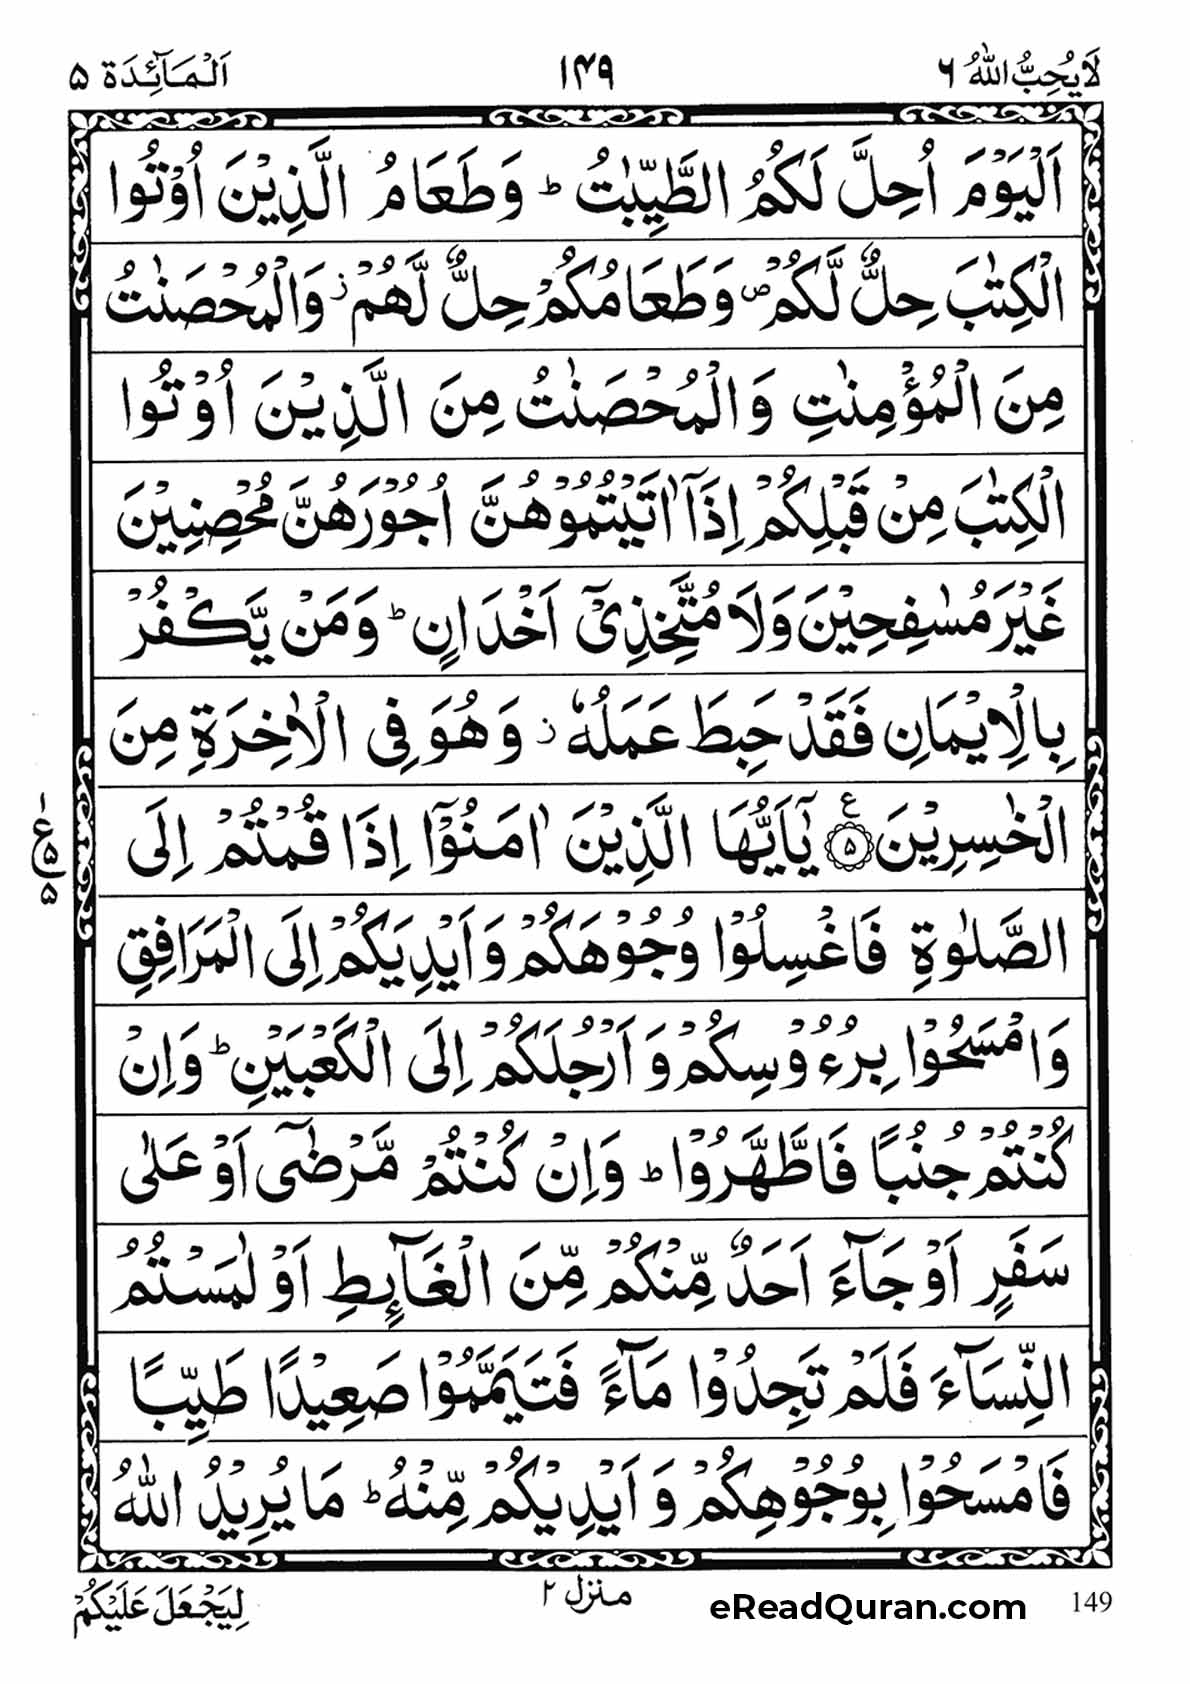 لَا يُحِبُّ اللّٰهُ ٦ ١٤٩ اَلْمَآئِدَة ٥
اَلْيَوْمَ اُحِلَّ لَكُمُ الطَّيِّبٰتُ ؕ وَ طَعَامُ الَّذِيْنَ اُوْتُوا
الْكِتٰبَ حِلٌّ لَّكُمْ ۪ وَ طَعَامُكُمْ حِلٌّ لَّهُمْ ؗ وَ الْمُحْصَنٰتُ
مِنَ الْمُؤْمِنٰتِ وَ الْمُحْصَنٰتُ مِنَ الَّذِيْنَ اُوْتُوا
الْكِتٰبَ مِنْ قَبْلِكُمْ اِذَاۤ اٰتَيْتُمُوْهُنَّ اُجُوْرَهُنَّ مُحْصِنِيْنَ
غَيْرَ مُسٰفِحِيْنَ وَلَا مُتَّخِذِيْۤ اَخْدَانٍ ؕ وَمَنْ يَّكْفُرْ
بِالْاِيْمَانِ فَقَدْ حَبِطَ عَمَلُهٗ ؗ وَ هُوَ فِي الْاٰخِرَةِ مِنَ
الْخٰسِرِيْنَ ۝٥ ع يٰۤاَيُّهَا الَّذِيْنَ اٰمَنُوْۤا اِذَا قُمْتُمْ اِلَى
ع ٥ ٥
الصَّلٰوةِ فَاغْسِلُوْا وُجُوْهَكُمْ وَ اَيْدِيَكُمْ اِلَى الْمَرَافِقِ
وَ امْسَحُوْا بِرُءُوْسِكُمْ وَ اَرْجُلَكُمْ اِلَى الْكَعْبَيْنِ ؕ وَ اِنْ
كُنْتُمْ جُنُبًا فَاطَّهَّرُوْا ؕ وَ اِنْ كُنْتُمْ مَّرْضٰۤى اَوْ عَلٰى
سَفَرٍ اَوْ جَآءَ اَحَدٌ مِّنْكُمْ مِّنَ الْغَآىِٕطِ اَوْ لٰمَسْتُمُ
النِّسَآءَ فَلَمْ تَجِدُوْا مَآءً فَتَيَمَّمُوْا صَعِيْدًا طَيِّبًا
فَامْسَحُوْا بِوُجُوْهِكُمْ وَ اَيْدِيْكُمْ مِّنْهُ ؕ مَا يُرِيْدُ اللّٰهُ
لِيَجْعَلَ عَلَيْكُمْ منزل ٢ eReadQuran.com 149